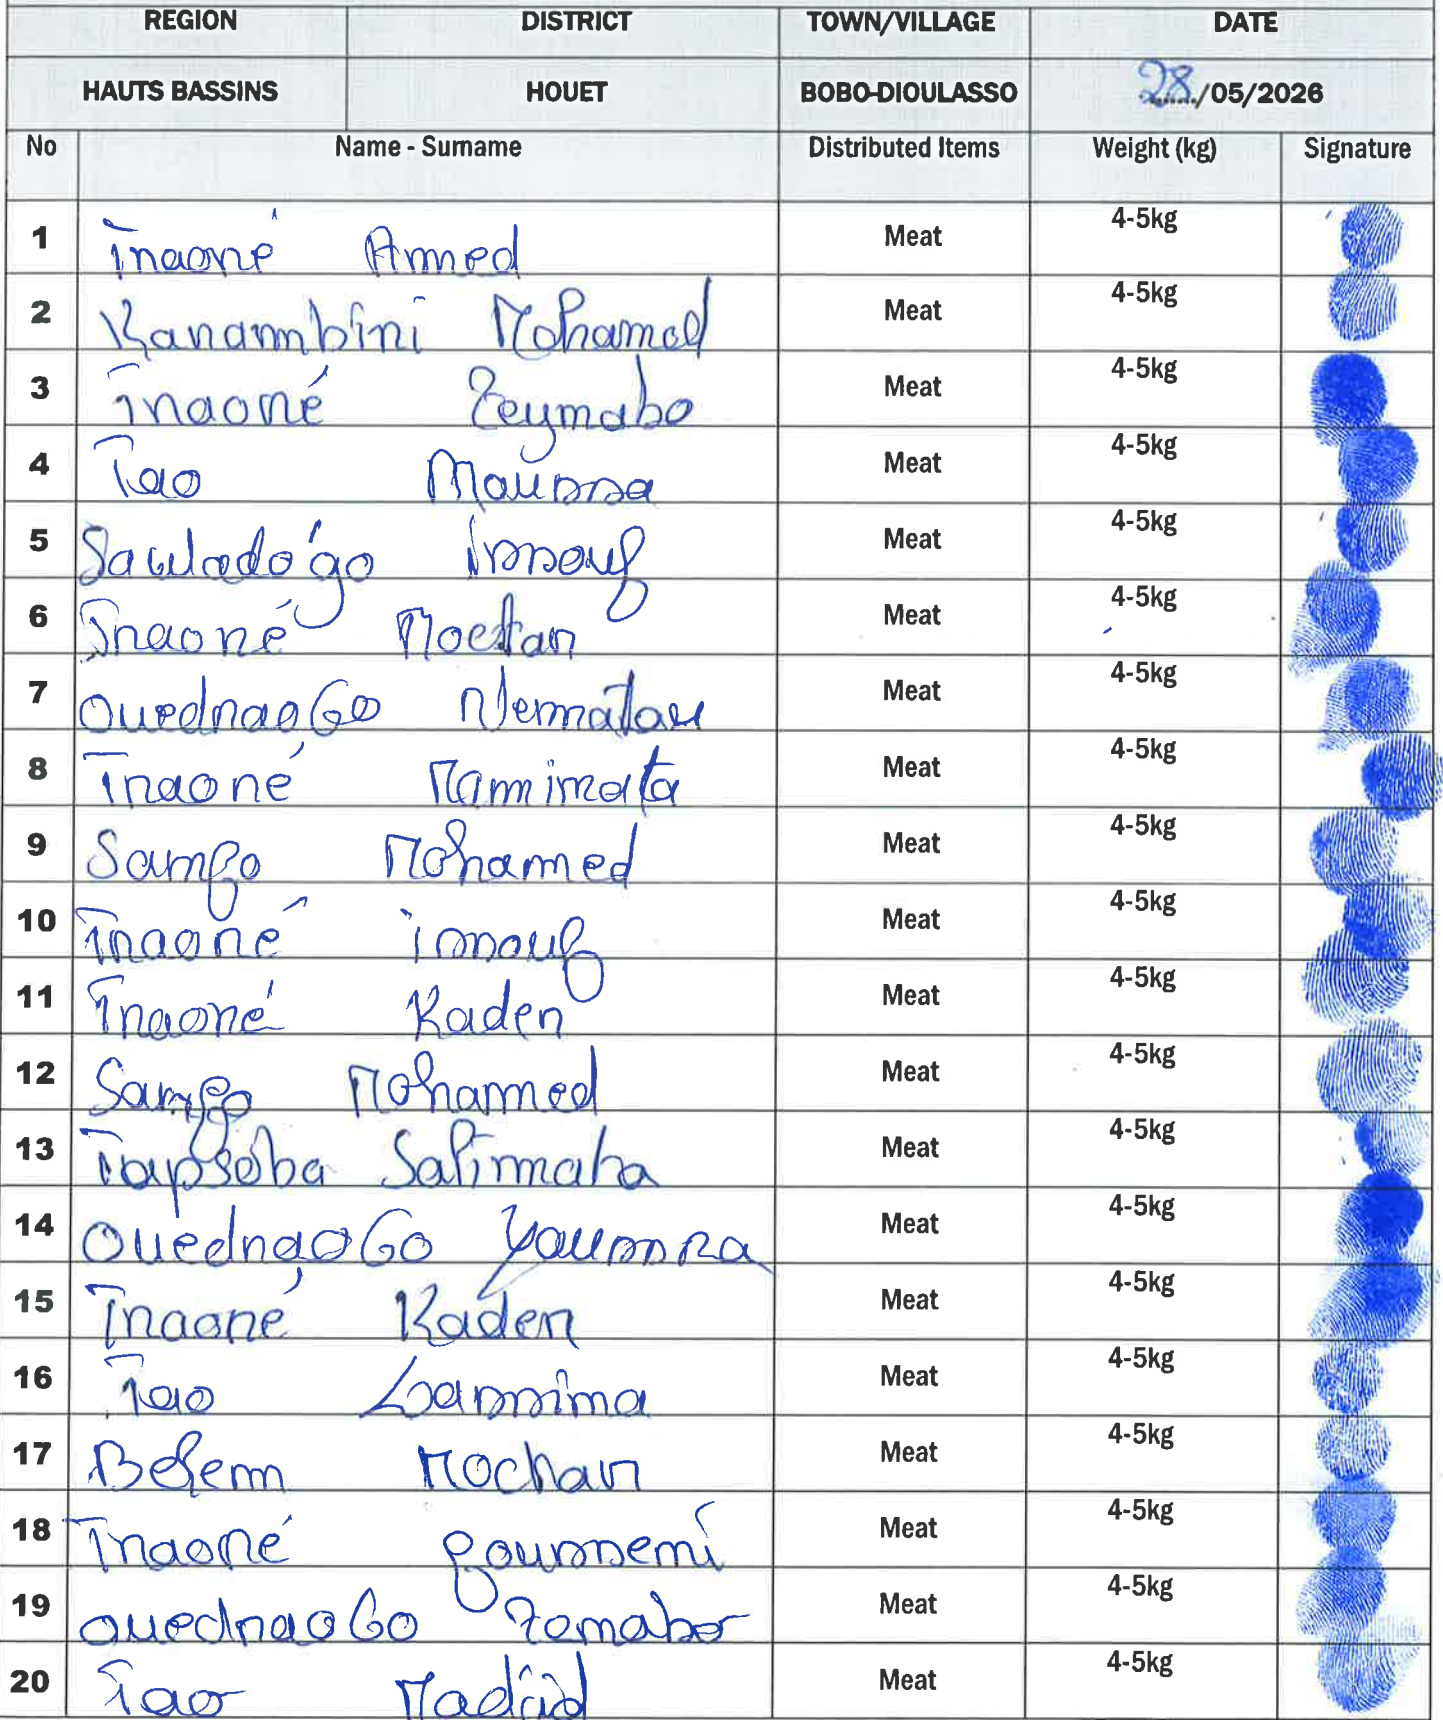 REGION DISTRICT TOWN/VILLAGE DATE
HAUTS BASSINS HOUET BOBO-DIOULASSO 28/05/2026
No Name - Surname Distributed Items Weight (kg) Signature
1 Traoré Amed Meat 4-5kg
2 Kanambini Mohamed Meat 4-5kg
3 Traoré Zeynabo Meat 4-5kg
4 Tao Moussa Meat 4-5kg
5 Sawadogo Issouf Meat 4-5kg
6 Traoré Moctar Meat 4-5kg
7 Ouedraogo Nematou Meat 4-5kg
8 Traoré Mamimata Meat 4-5kg
9 Sampo Mohamed Meat 4-5kg
10 Traoré issouf Meat 4-5kg
11 Traoré Kader Meat 4-5kg
12 Mohamed Meat 4-5kg
13 Tapsoba Salimata Meat 4-5kg
14 Ouedraogo Meat 4-5kg
15 Traoré Kader Meat 4-5kg
16 Tao Lassima Meat 4-5kg
17 Belem Mochar Meat 4-5kg
18 Traoré Meat 4-5kg
19 ouedraogo Zenabo Meat 4-5kg
20 Tao Madrid Meat 4-5kg